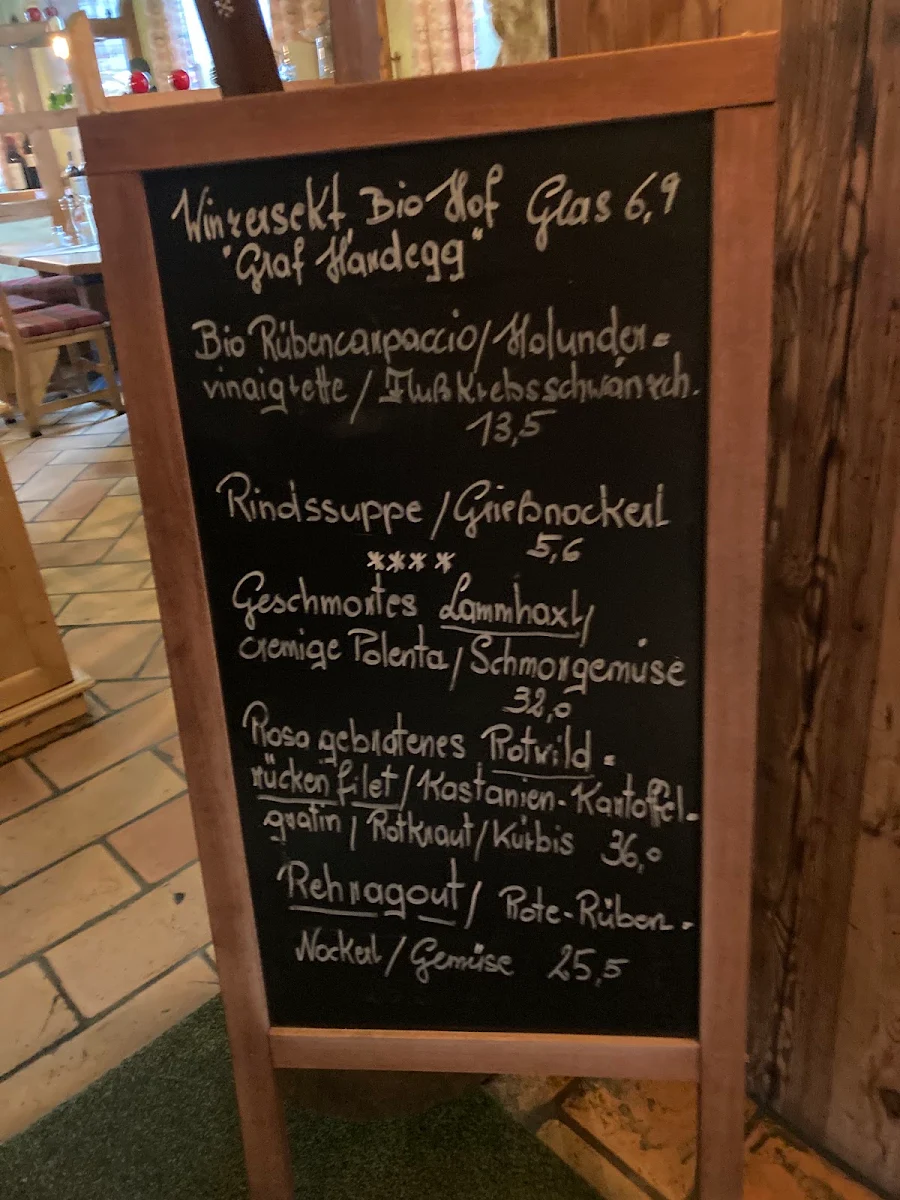 Winzersekt, Bio Hof Glas 6,9
"Graf Hardegg"
Bio Rübencarpaccio/Holunder=
vinaigrette/Flußkrebsschwänzch.
13,5
Rindssuppe/Grießnockerl
5,6
****
Geschmortes Lammhaxl/
cremige Polenta/Schmorgemüse
32,0
Rosa gebratenes Rotwild=
rückenfilet/Kastanien-Kartoffel-
gratin/Rotkraut/Kürbis 36,0
Rehragout/ Rote-Rüben-
Nockerl/Gemüse 25,5